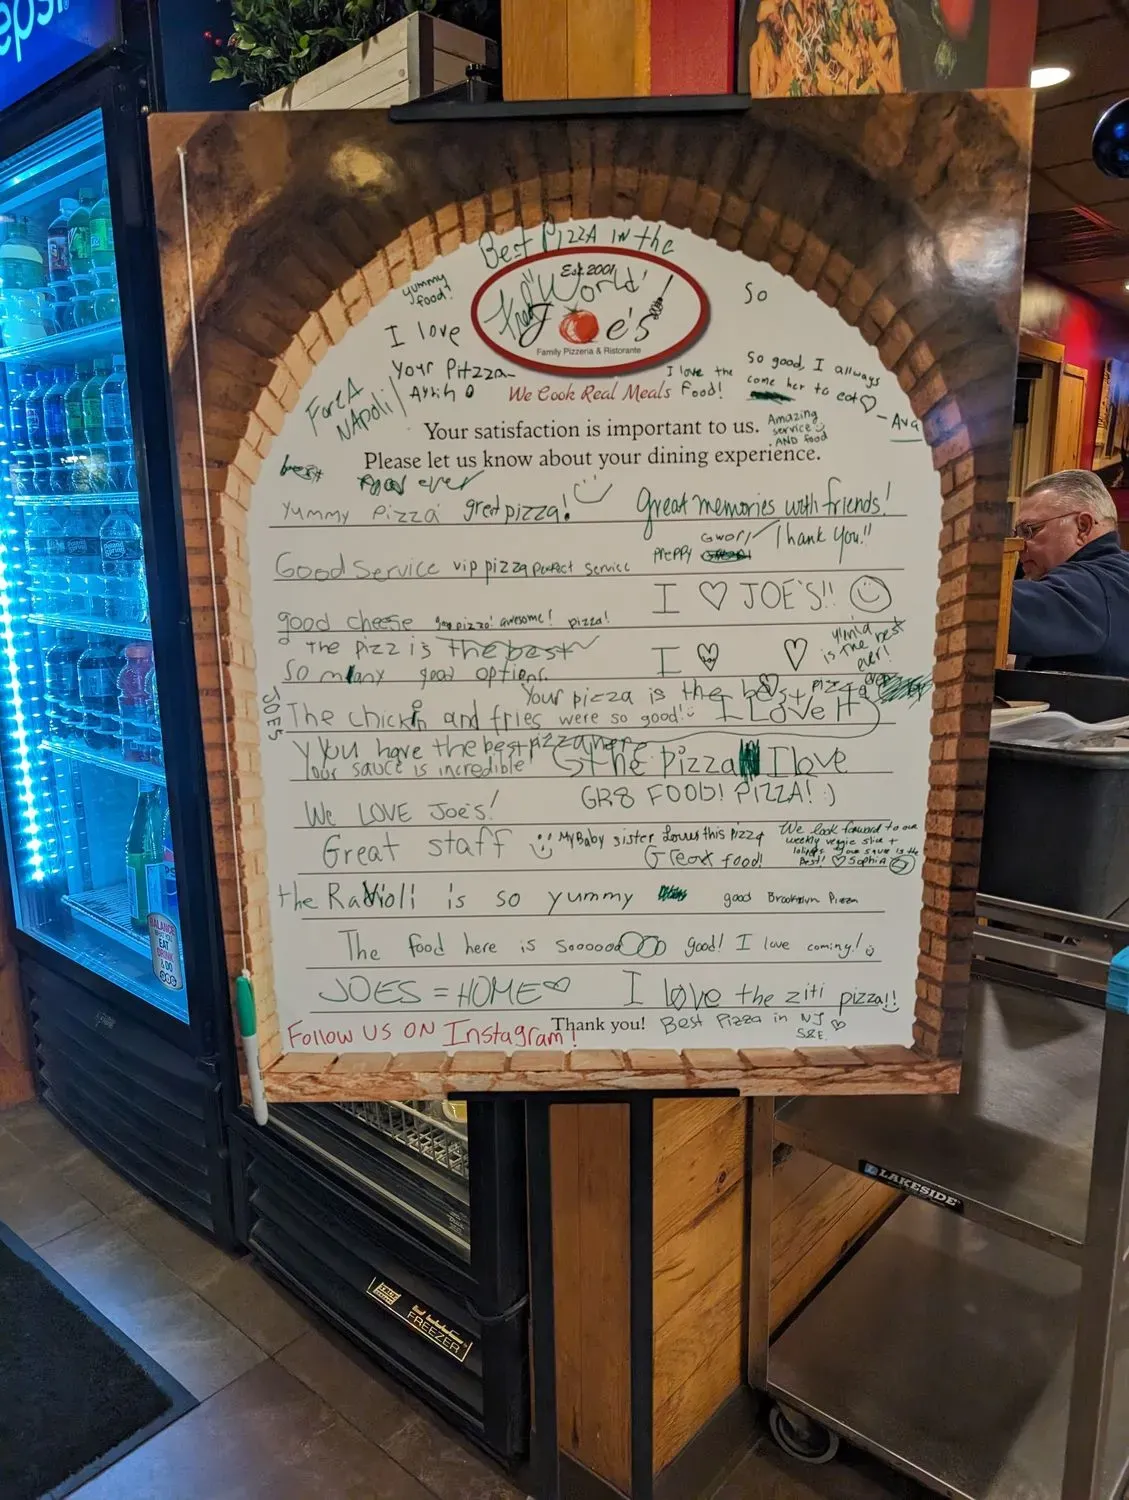 Best PIZZA IN the
"World"
Est. 2001
Joe's
Family Pizzeria & Ristorante
We Cook Real Meals
yummy food!
I love
Your Pitzza
So
I love the Food!
So good, I allways
come her to eat♡
- Ava
ForzA NAPOli
Amazing service AND food
Your satisfaction is important to us.
Please let us know about your dining experience.
best
ever
Yummy Pizza great pizza! Great memories with friends!
Thank you!!
preppy
Good Service vip pizza perfect service
I ♡ JOE'S!!
good cheese awesome! pizza!
the pizz is the best
I ♡ ♡
is the best ever!
So many good options.
Your pizza is the best
JOES
The chickin and fries were so good! I Love it
You have the best pizza here
Your sauce is incredible! the Pizza I love
GR8 FOOD! PIZZA! :)
We LOVE Joe's!
Great staff My Baby sister Loves this pizza
Great food!
We look forward to our
weekly veggie slice +
your sauce is the
Best! ♡ Sophia
the Ravioli is so yummy good Brooklyn Pizza
The food here is soooooooOOO good! I love coming!
JOES = HOME♡ I love the ziti pizza!!
Follow US ON Instagram! Thank you! Best Pizza in NJ ♡
S&E.
pepsi
BALANCE WHAT YOU EAT DRINK & DO
FREEZER
LAKESIDE